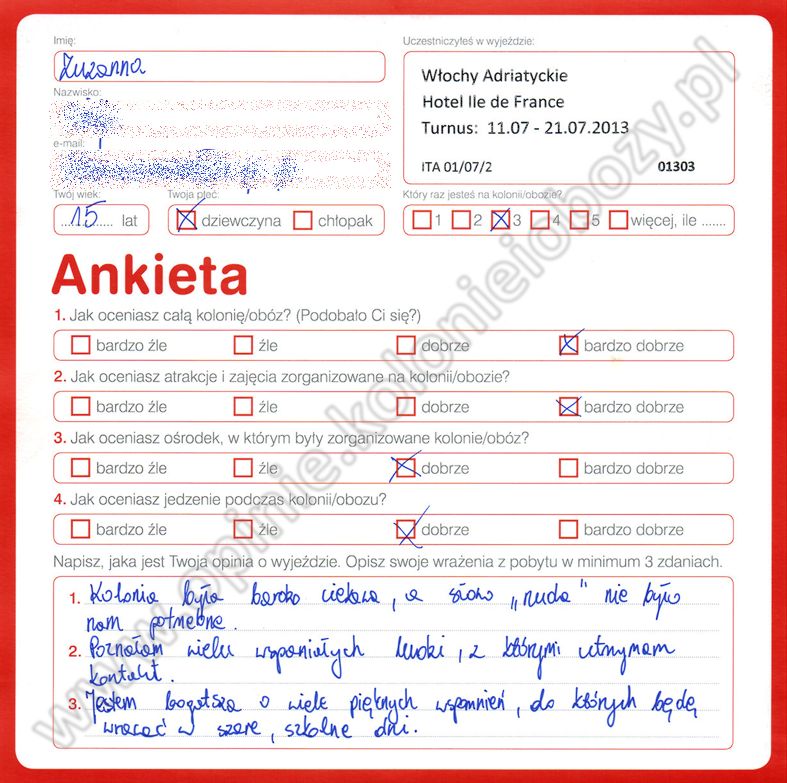 Imię:
Zuzanna
Uczestniczyłeś w wyjeździe:
Włochy Adriatyckie
Hotel Ile de France
Turnus: 11.07 - 21.07.2013
ITA 01/07/2 01303
Nazwisko:
e-mail:
Twój wiek:
15 lat
Twoja płeć:
dziewczyna chłopak
Który raz jesteś na kolonii/obozie?
1 2 3 4 5 więcej, ile .......
Ankieta
1. Jak oceniasz całą kolonię/obóz? (Podobało Ci się?)
bardzo źle źle dobrze bardzo dobrze
2. Jak oceniasz atrakcje i zajęcia zorganizowane na kolonii/obozie?
bardzo źle źle dobrze bardzo dobrze
3. Jak oceniasz ośrodek, w którym były zorganizowane kolonie/obóz?
bardzo źle źle dobrze bardzo dobrze
4. Jak oceniasz jedzenie podczas kolonii/obozu?
bardzo źle źle dobrze bardzo dobrze
Napisz, jaka jest Twoja opinia o wyjeździe. Opisz swoje wrażenia z pobytu w minimum 3 zdaniach.
1. Kolonia była bardzo ciekawa, a słowo „nuda" nie było
nam potrzebne.
2. Poznałam wielu wspaniałych ludzi, z którymi utrzymam
kontakt.
3. Jestem bogatsza o wiele pięknych wspomnień, do których będę
wracać w szare, szkolne dni.
www.opinie.kolonieiobozy.pl